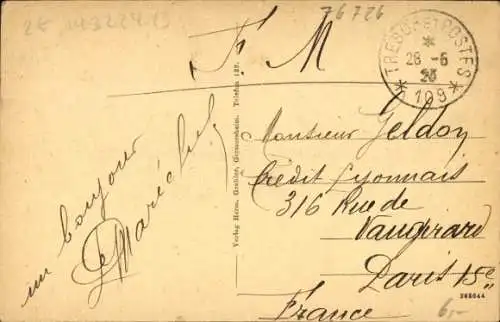 2E 143224 15
76726
F. M
TRESOR ET POSTES
28 - 6
23
* 109 *
un bonjour
Maréchal
Verlag Herm. Grohler, Germersheim. Telefon 135.
Monsieur Jeldon
Crédit Lyonnais
316 Rue de
Vaugirard
Paris 15e
France
265044
6,-